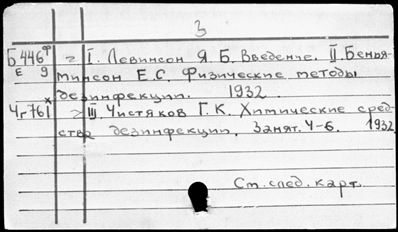 3
Б446ф г I. Левинсон Я.Б. Введение. II. Бенья-
Е 9 минсон Е.С. Физические методы
дезинфекции. 1932.
Чг761х г III Чистяков Г.К. Химические сред-
ства дезинфекции, Занят. 4-6. 1932
См. след. карт.